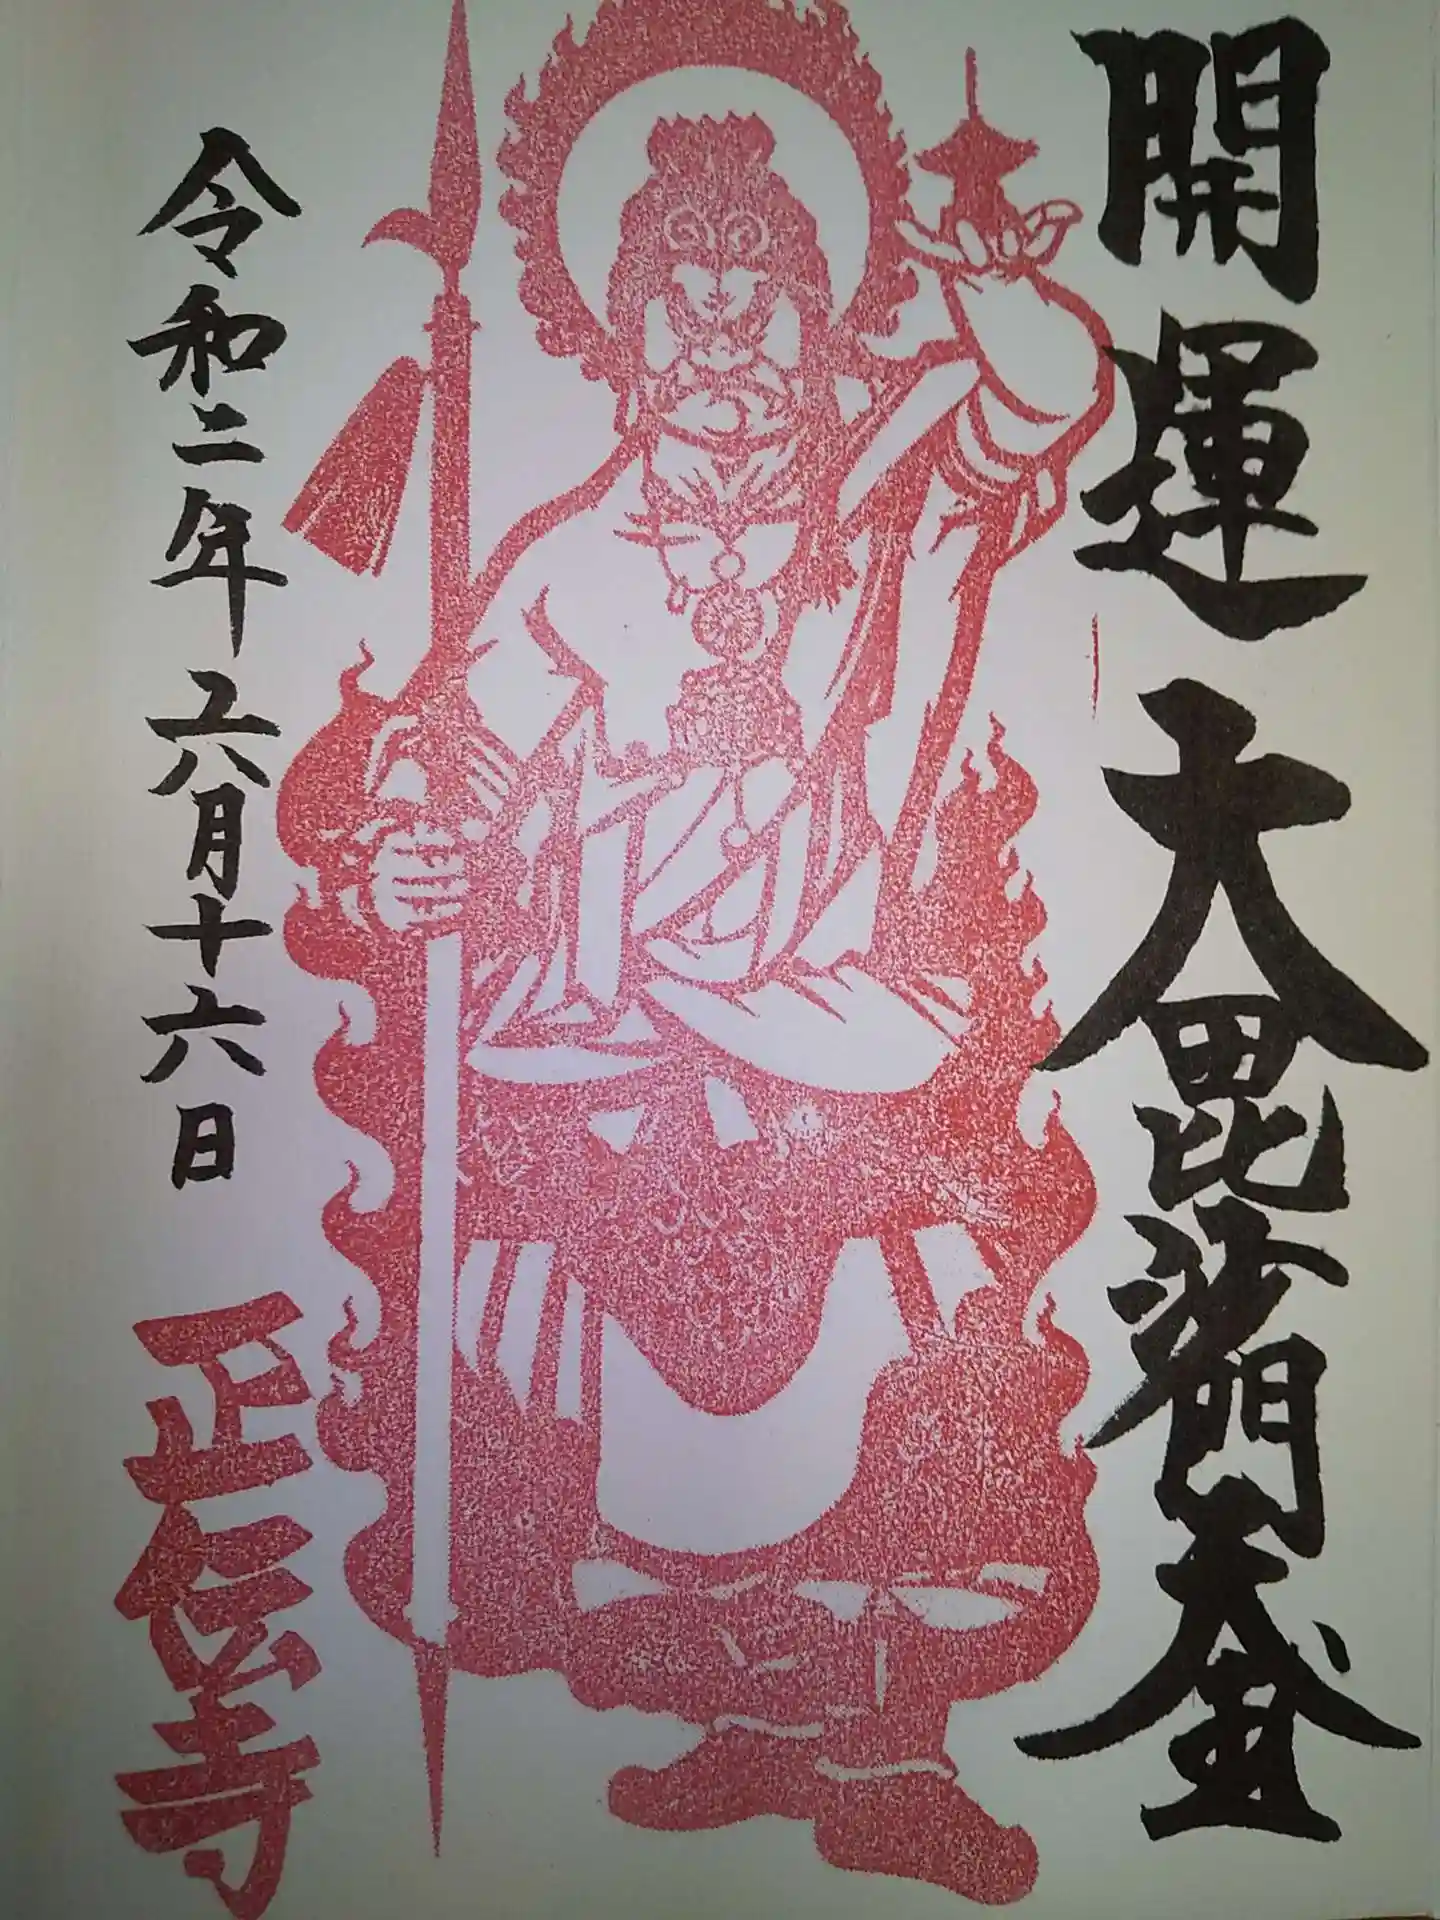 開運大毘沙門天王
令和二年六月十六日
正伝寺